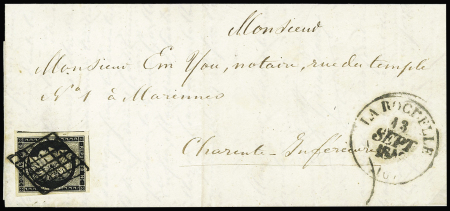 Monsieur
Monsieur Em You, notaire, rue du temple
N° 1 à Marennes
Charente-Inférieure
LA ROCHELLE
13
SEPT